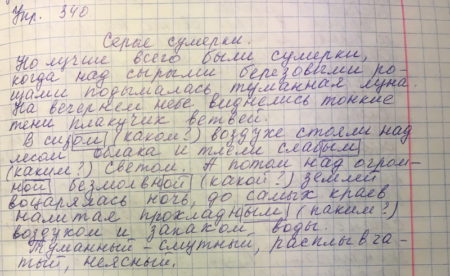 Упр. 340
Серые сумерки.
Но лучше всего были сумерки,
когда над сырыми березовыми ро-
щами подымалась туманная луна.
На вечернем небе виднелись тонкие
тени плакучих ветвей.
В сизом (каком?) воздухе стояли над
лесом облака и тлели слабым
(каким?) светом. А потом над огром-
ной безмолвной (какой?) землей
воцарялась ночь, до самых краев
налитая прохладным (каким?)
воздухом и запахом воды.
Туманный - смутный, расплывча-
тый, неясный.